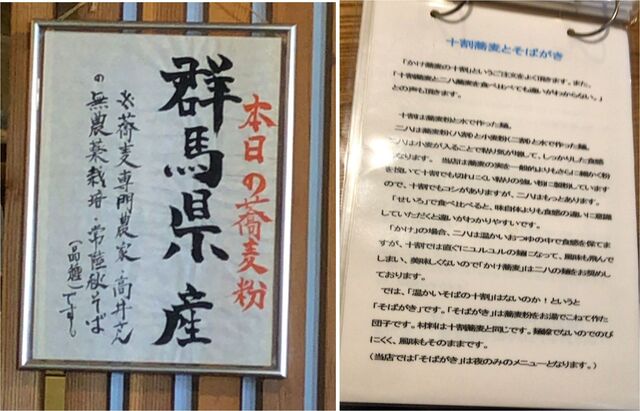 本日の蕎麦粉
群馬県産
※蕎麦専門農家・高井さん
の無農薬栽培・常陸秋そば
(品種)です。
十割蕎麦とそばがき
「かけ蕎麦の十割」というご注文をよく頂きます。また、
「十割蕎麦と二八蕎麦を食べ比べても違いがわからない。」
との声も頂きます。
十割は蕎麦粉と水で作った麺。
二八は蕎麦粉(八割)と小麦粉(二割)と水で作った麺。
二八は小麦が入ることで粘り気が増して、しっかりした食感
なります。 当店は蕎麦の実を一般的よりもさらに細かく粉
を挽いて十割でも切れにくい粘りの強い粉に製粉しています
ので、十割でもコシがありますが、二八はもっとあります。
「せいろ」で食べ比べると、味自体よりも食感の違いに意識
していただくと違いがわかりやすいです。
「かけ」の場合、二八は温かいおつゆの中で食感を保てま
すが、十割では直ぐにユルユルの麺になって、風味も飛んで
しまい、美味しくないので「かけ蕎麦」は二八の麺をお奨めし
ております。
では、「温かいそばの十割」はないのか!というと
「そばがき」です。「そばがき」は蕎麦粉をお湯でこねて作た
団子です。材料は十割蕎麦と同じです。麺線でないのでのび
にくく、風味もそのままです。
(当店では「そばがき」は夜のみのメニューとなります。)